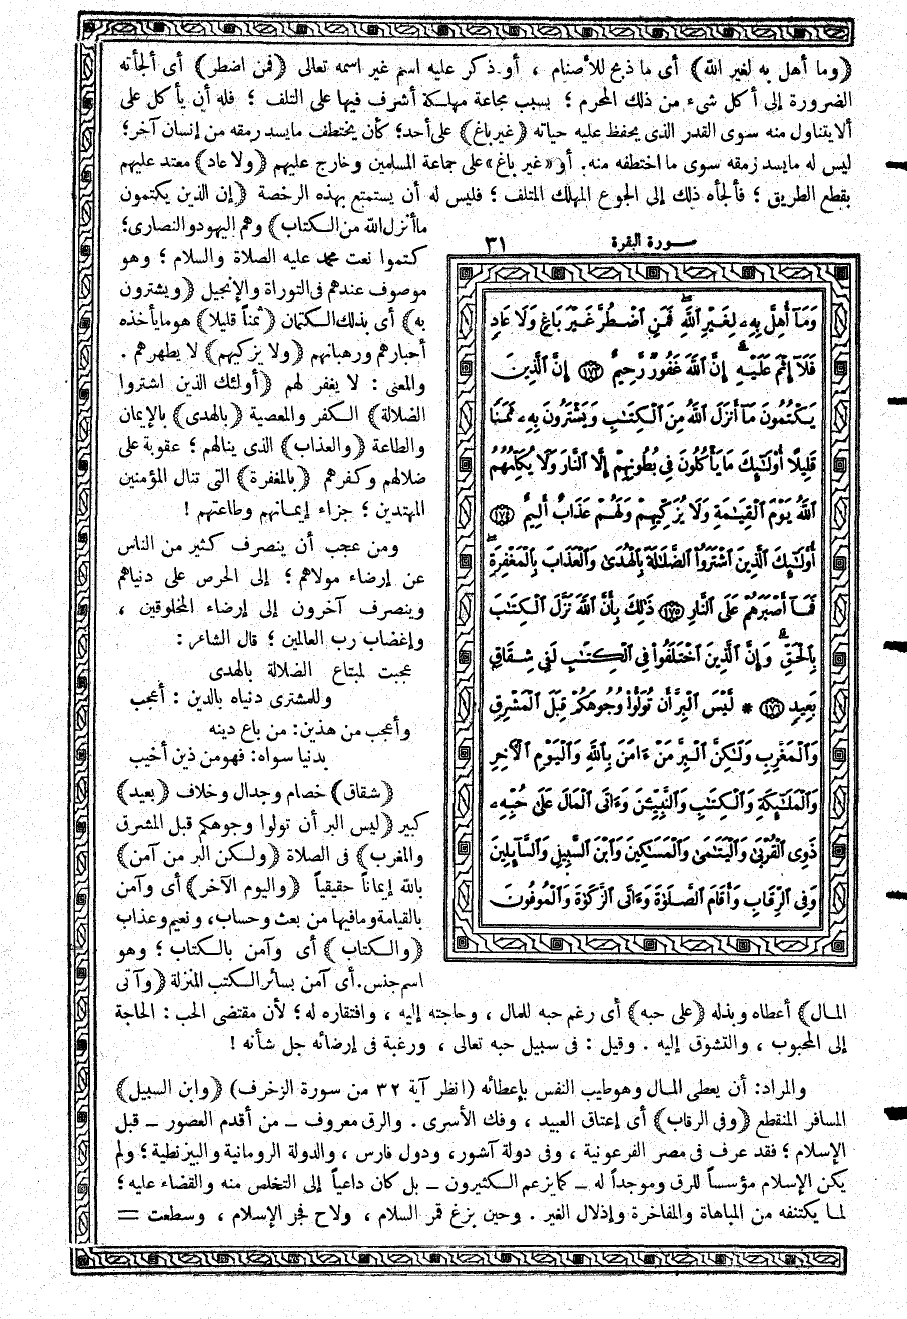 (وما أهل به لغير الله) أى ما ذبح للأصنام ، أو ذكر عليه اسم غير اسمه تعالى (فمن اضطر) أى ألجأته
الضرورة إلى أكل شىء من ذلك المحرم ؛ بسبب مجاعة مهلكة أشرف فيها على التلف ؛ فله أن يأكل على
ألا يتناول منه سوى القدر الذى يحفظ عليه حياته (غير باغ) على أحد؛ كأن يختطف مايسد رمقه من إنسان آخر؛
ليس له مايسد رمقه سوى ما اختطفه منه. أو «غير باغ» على جماعة المسلمين وخارج عليهم (ولا عاد) معتد عليهم
بقطع الطريق ؛ فألجأه ذلك إلى الجوع المهلك المتلف ؛ فليس له أن يستمتع بهذه الرخصة (إن الذين يكتمون
ما أنزل الله من الكتاب) وهم اليهود والنصارى؛
كتموا نعت محمد عليه الصلاة والسلام ؛ وهو
موصوف عندهم فى التوراة والإنجيل (ويشترون
به) أى بذلك الكتمان (ثمناً قليلا) هو ما يأخذه
أحبارهم ورهبانهم (ولا يزكيهم) لا يطهرهم .
والمعنى : لا يغفر لهم (أولئك الذين اشتروا
الضلالة) الكفر والمعصية (بالهدى) بالإيمان
والطاعة (والعذاب) الذى ينالهم ؛ عقوبة على
ضلالهم وكفرهم (بالمغفرة) التى تنال المؤمنين
المهتدين ؛ جزاء إيمانهم وطاعتهم !
ومن عجب أن ينصرف كثير من الناس
عن إرضاء مولاهم ؛ إلى الحرص على دنياهم
وينصرف آخرون إلى إرضاء المخلوقين ،
وإغضاب رب العالمين ؛ قال الشاعر :
عجبت لمبتاع الضلالة بالهدى
وللمشترى دنياه بالدين : أعجب
وأعجب من هذين: من باع دينه
بدنيا سواه: فهو من ذين أخيب
(شقاق) خصام وجدال وخلاف (بعيد)
كبير (ليس البر أن تولوا وجوهكم قبل المشرق
والمغرب) فى الصلاة (ولكن البر من آمن)
بالله إيماناً حقيقياً (واليوم الآخر) أى وآمن
بالقيامة وما فيها من بعث وحساب، ونعيم وعذاب
(والكتاب) أى وآمن بالكتاب ؛ وهو
اسم جنس. أى آمن بسائر الكتب المنزلة (وآتى
سورة البقرة ٣١
وَمَآ أُهِلَّ بِهِۦ لِغَيْرِ ٱللَّهِ ۖ فَمَنِ ٱضْطُرَّ غَيْرَ بَاغٍ وَلَا عَادٍ
فَلَآ إِثْمَ عَلَيْهِ ۚ إِنَّ ٱللَّهَ غَفُورٌ رَّحِيمٌ ﴿١٧٣﴾ إِنَّ ٱلَّذِينَ
يَكْتُمُونَ مَآ أَنزَلَ ٱللَّهُ مِنَ ٱلْكِتَٰبِ وَيَشْتَرُونَ بِهِۦ ثَمَنًا
قَلِيلًا أُوْلَٰٓئِكَ مَا يَأْكُلُونَ فِى بُطُونِهِمْ إِلَّا ٱلنَّارَ وَلَا يُكَلِّمُهُمُ
ٱللَّهُ يَوْمَ ٱلْقِيَٰمَةِ وَلَا يُزَكِّيهِمْ وَلَهُمْ عَذَابٌ أَلِيمٌ ﴿١٧٤﴾
أُوْلَٰٓئِكَ ٱلَّذِينَ ٱشْتَرَوُاْ ٱلضَّلَٰلَةَ بِٱلْهُدَىٰ وَٱلْعَذَابَ بِٱلْمَغْفِرَةِ ۚ
فَمَآ أَصْبَرَهُمْ عَلَى ٱلنَّارِ ﴿١٧٥﴾ ذَٰلِكَ بِأَنَّ ٱللَّهَ نَزَّلَ ٱلْكِتَٰبَ
بِٱلْحَقِّ ۗ وَإِنَّ ٱلَّذِينَ ٱخْتَلَفُواْ فِى ٱلْكِتَٰبِ لَفِى شِقَاقٍۭ
بَعِيدٍ ﴿١٧٦﴾ * لَّيْسَ ٱلْبِرَّ أَن تُوَلُّواْ وُجُوهَكُمْ قِبَلَ ٱلْمَشْرِقِ
وَٱلْمَغْرِبِ وَلَٰكِنَّ ٱلْبِرَّ مَنْ ءَامَنَ بِٱللَّهِ وَٱلْيَوْمِ ٱلْأٓخِرِ
وَٱلْمَلَٰٓئِكَةِ وَٱلْكِتَٰبِ وَٱلنَّبِيِّۦنَ وَءَاتَى ٱلْمَالَ عَلَىٰ حُبِّهِۦ
ذَوِى ٱلْقُرْبَىٰ وَٱلْيَتَٰمَىٰ وَٱلْمَسَٰكِينَ وَٱبْنَ ٱلسَّبِيلِ وَٱلسَّآئِلِينَ
وَفِى ٱلرِّقَابِ وَأَقَامَ ٱلصَّلَوٰةَ وَءَاتَى ٱلزَّكَوٰةَ وَٱلْمُوفُونَ
المال) أعطاه وبذله (على حبه) أى رغم حبه للمال ، وحاجته إليه ، وافتقاره له ؛ لأن مقتضى الحب : الحاجة
إلى المحبوب ، والتشوق إليه . وقيل : فى سبيل حبه تعالى ، ورغبة فى إرضائه جل شأنه !
والمراد: أن يعطى المال وهو طيب النفس بإعطائه (انظر آية ٣٢ من سورة الزخرف) (وابن السبيل)
المسافر المنقطع (وفى الرقاب) أى إعتاق العبيد ، وفك الأسرى . والرق معروف ـ من أقدم العصور ـ قبل
الإسلام ؛ فقد عرف فى مصر الفرعونية ، وفى دولة آشور، ودول فارس ، والدولة الرومانية والبيزنطية ؛ ولم
يكن الإسلام مؤسساً للرق وموجداً له ـ كما يزعم الكثيرون ـ بل كان داعياً إلى التخلص منه والقضاء عليه ؛
لما يكتنفه من المباهاة والمفاخرة وإذلال الغير . وحين بزغ قمر السلام ، ولاح فجر الإسلام ، وسطعت =